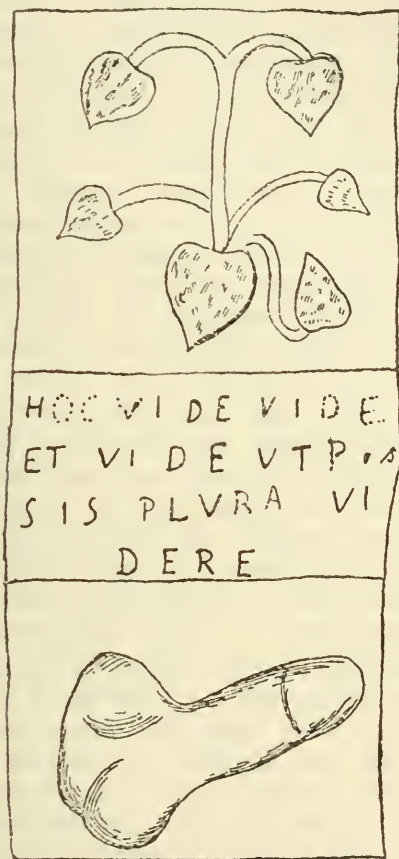 HOC VIDE VIDE
ET VIDE VT P.s
SIS PLVRA VI
DERE